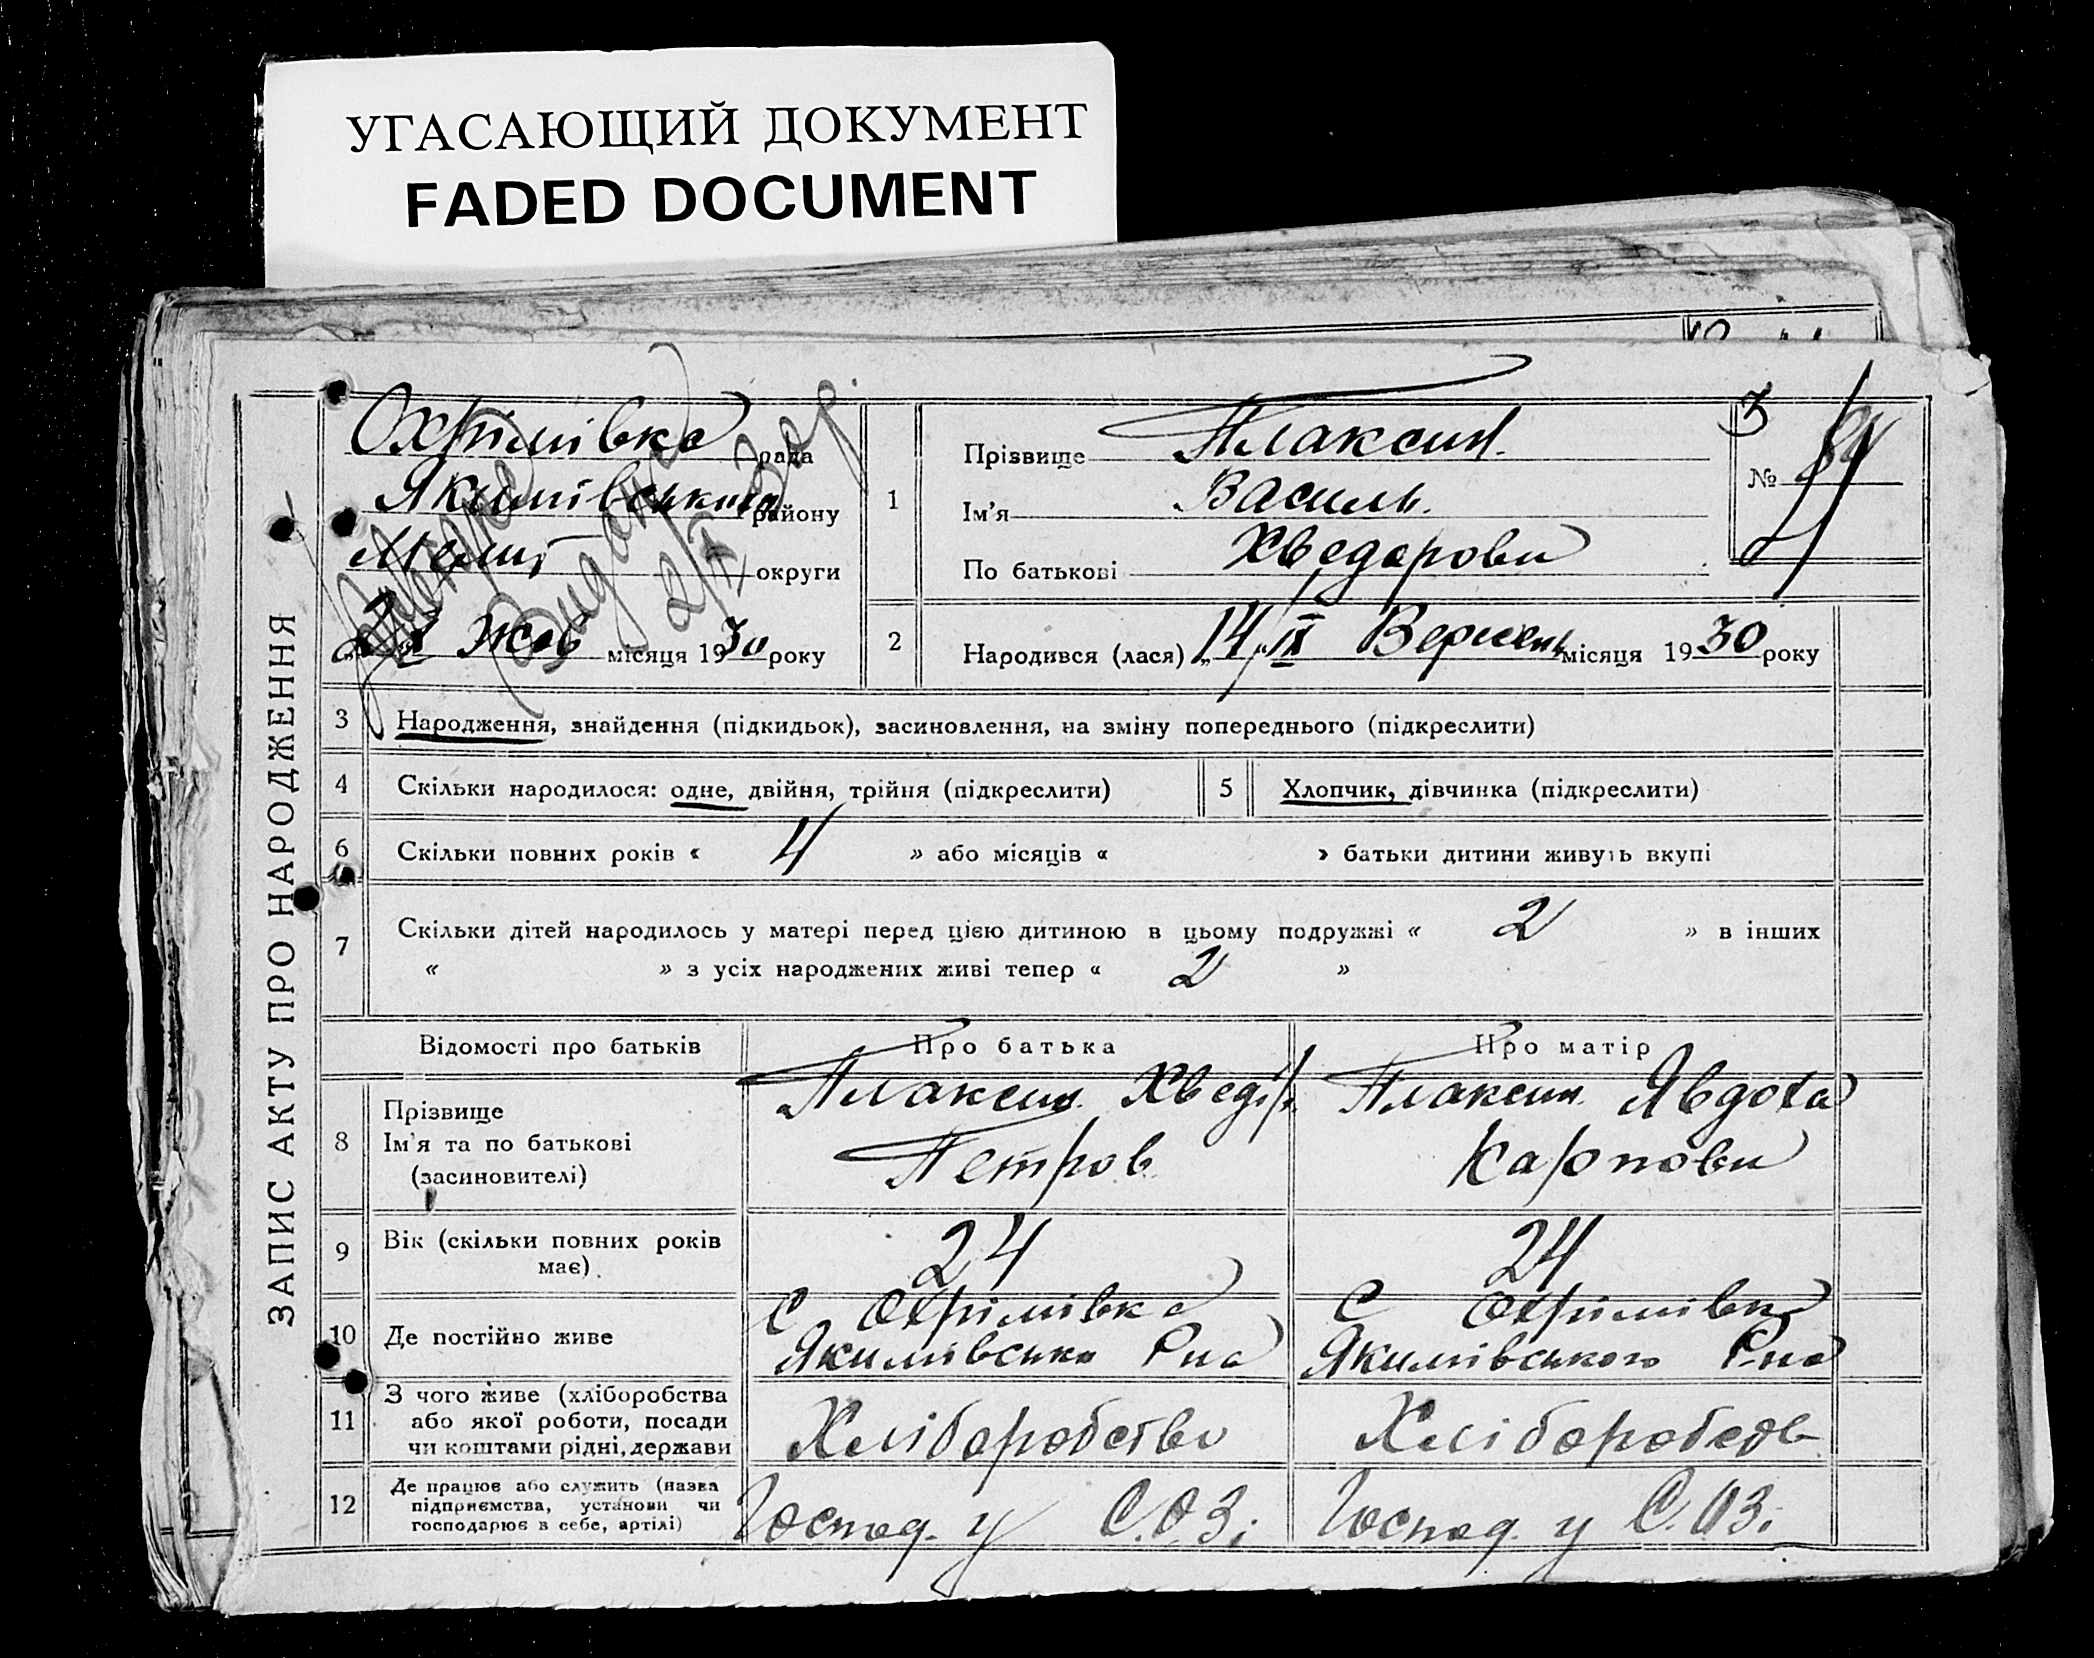 УГАСАЮЩИЙ ДОКУМЕНТ
FADED DOCUMENT
ЗАПИС АКТУ ПРО НАРОДЖЕННЯ
Охрімівка рада
Якимівського району
Меліт округи
Жов місяця 1930 року
1
Прізвище Плаксин.
Ім'я Василь.
По батькові Хведорови
№
2
Народився (лася) „14/IX Вересень місяця 1930 року
3 Народження, знайдення (підкидьок), засиновлення, на зміну попереднього (підкреслити)
4 Скільки народилося: одне, двійня, трійня (підкреслити) 5 Хлопчик, дівчинка (підкреслити)
6 Скільки повних років « 4 » або місяців « » батьки дитини живуть вкупі
7 Скільки дітей народилось у матері перед цією дитиною в цьому подружжі « 2 » в інших
« » з усіх народжених живі тепер « 2 »
Відомості про батьків Про батька Про матір
8 Прізвище
Ім'я та по батькові
(засиновителі)
Плаксин. Хведір.
Петров
Плаксин. Явдоха
Карпови
9 Вік (скільки повних років
має)
24 24
10 Де постійно живе
С Охрімівка
Якимівсько Р-на
С Охрімівка
Якимівського Р-на
11 З чого живе (хліборобства
або якої роботи, посади
чи коштами рідні, держави
Хліборобство Хліборобств
12 Де працює або служить (назва
підприємства, установи чи
господарює в себе, артілі)
Господ. у С.О.З; Господ. у С.О.З;